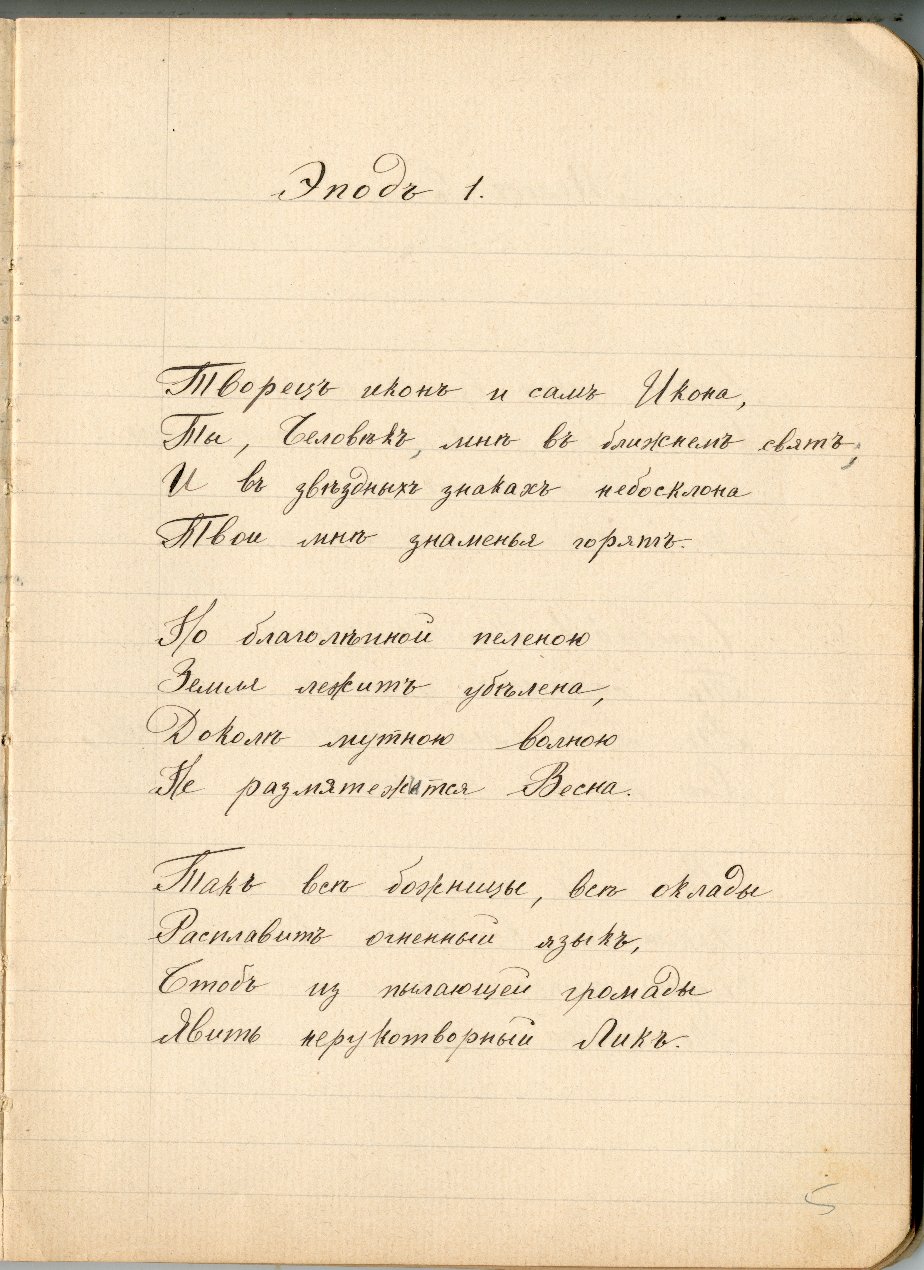 Эподъ 1.
Творецъ иконъ и самъ Икона,
Ты, Человѣкъ, мнѣ въ ближнемъ святъ;
И въ звѣздныхъ знакахъ небосклона
Твои мнѣ знаменья горятъ.
Но благолѣпной пеленою
Земля лежитъ убѣлена,
Доколѣ мутною волною
Не размятежится Весна.
Такъ всѣ божницы, всѣ оклады
Расплавитъ огненный языкъ,
Чтобъ из пылающей громады
Явить нерукотворный Ликъ.
5